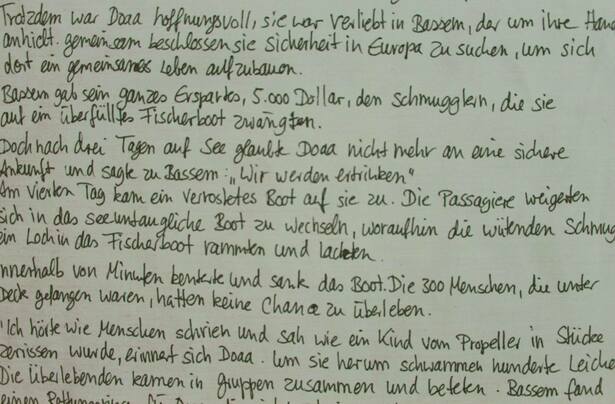 Trotzdem war Doaa hoffnungsvoll, sie war verliebt in Bassem, der um ihre Hand
anhielt. gemeinsam beschlossen sie Sicherheit in Europa zu suchen, um sich
dort ein gemeinsames Leben aufzubauen.
Bassem gab sein ganzes Erspartes, 5.000 Dollar, den Schmugglern, die sie
auf ein überfülltes Fischerboot zwängten.
Doch nach drei Tagen auf See glaubte Doaa nicht mehr an eine sichere
Ankunft und sagte zu Bassem: „Wir werden ertrinken"
Am vierten Tag kam ein verrostetes Boot auf sie zu. Die Passagiere weigerten
sich in das seeuntaugliche Boot zu wechseln, woraufhin die wütenden Schmug
ein Loch in das Fischerboot rammten und lachten.
Innerhalb von Minuten kenterte und sank das Boot. Die 300 Menschen, die unter
Deck gefangen waren, hatten keine Chance zu überleben.
"Ich hörte wie Menschen schrien und sah wie ein Kind vom Propeller in Stücke
zerrissen wurde, erinnert sich Doaa. Um sie herum schwammen hunderte Leiche
Die Überlebenden kamen in Gruppen zusammen und beteten. Bassem fand
einen